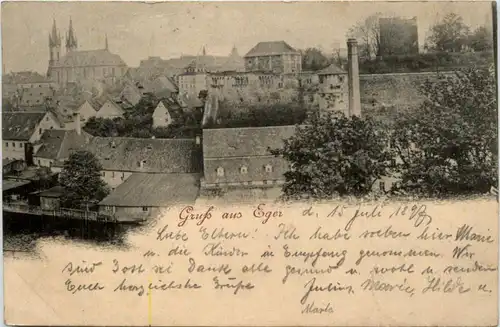 Gruss aus Eger d. 15 Juli 1897
Liebe Eltern! Ich habe soeben hier Marie
u. die Kinder in Empfang genommen. Wir
sind Gott sei Dank alle gesund u. wohl u. senden
Euch herzlichste Grüße Julius, Marie, Hilde u.
Marta